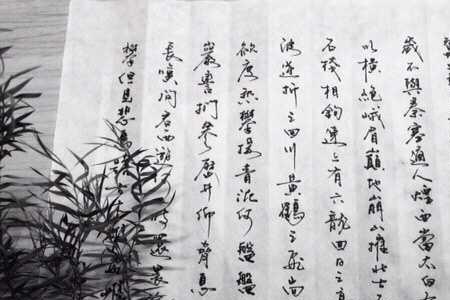 歲不與秦塞通人煙西當太白
以橫絕峨眉巔地崩山摧壯士
石棧相鉤連上有六龍回日之
波逆折之回川黃鶴之飛尚
欲度愁攀援青泥何盤盤
巖巒捫參歷井仰脅息
長嘆問君西遊
攀但見悲鳥